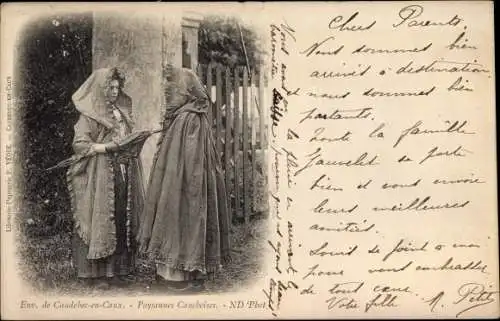 Chers Parents.
Nous sommes bien
arrivés à destination
et nous sommes bien
portants.
Toute la famille
Jauvelet se porte
bien et vous envoie
leurs meilleures
amitiés.
Louis se joint à moi
pour vous embrasser
de tout cœur.
Votre fille M. Petit
Vous avez
la pluie en arrivant
Librairie Papeterie F. TÉCHE — Caudebec-en-Caux
Env. de Caudebec-en-Caux. - Paysannes Cauchoises. - ND Phot.